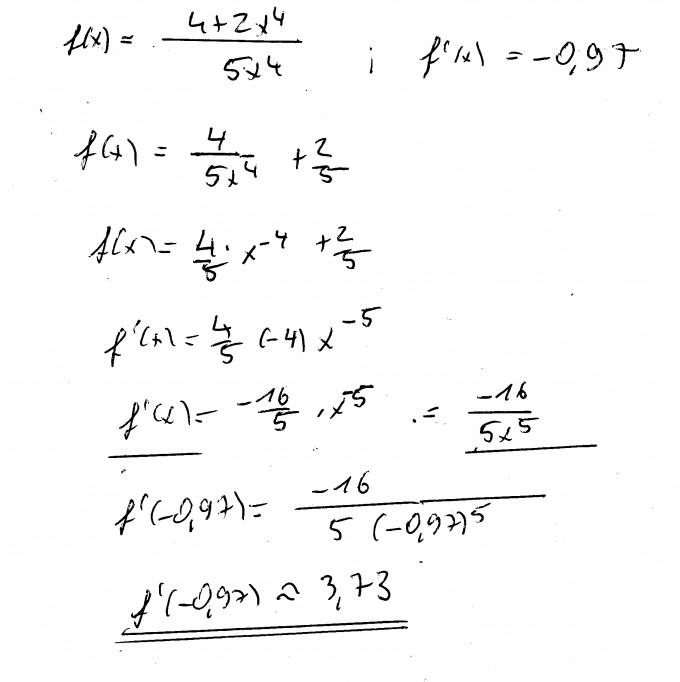 f(x) = (4+2x^4)/(5x^4) ; f'(x) = -0,97
f(x) = 4/(5x^4) + 2/5
f(x) = 4/5 · x^-4 + 2/5
f'(x) = 4/5 (-4) x^-5
f'(x) = -16/5 · x^-5 = -16/(5x^5)
f'(-0,97) = -16/(5 (-0,97)^5)
f'(-0,97) ≈ 3,73